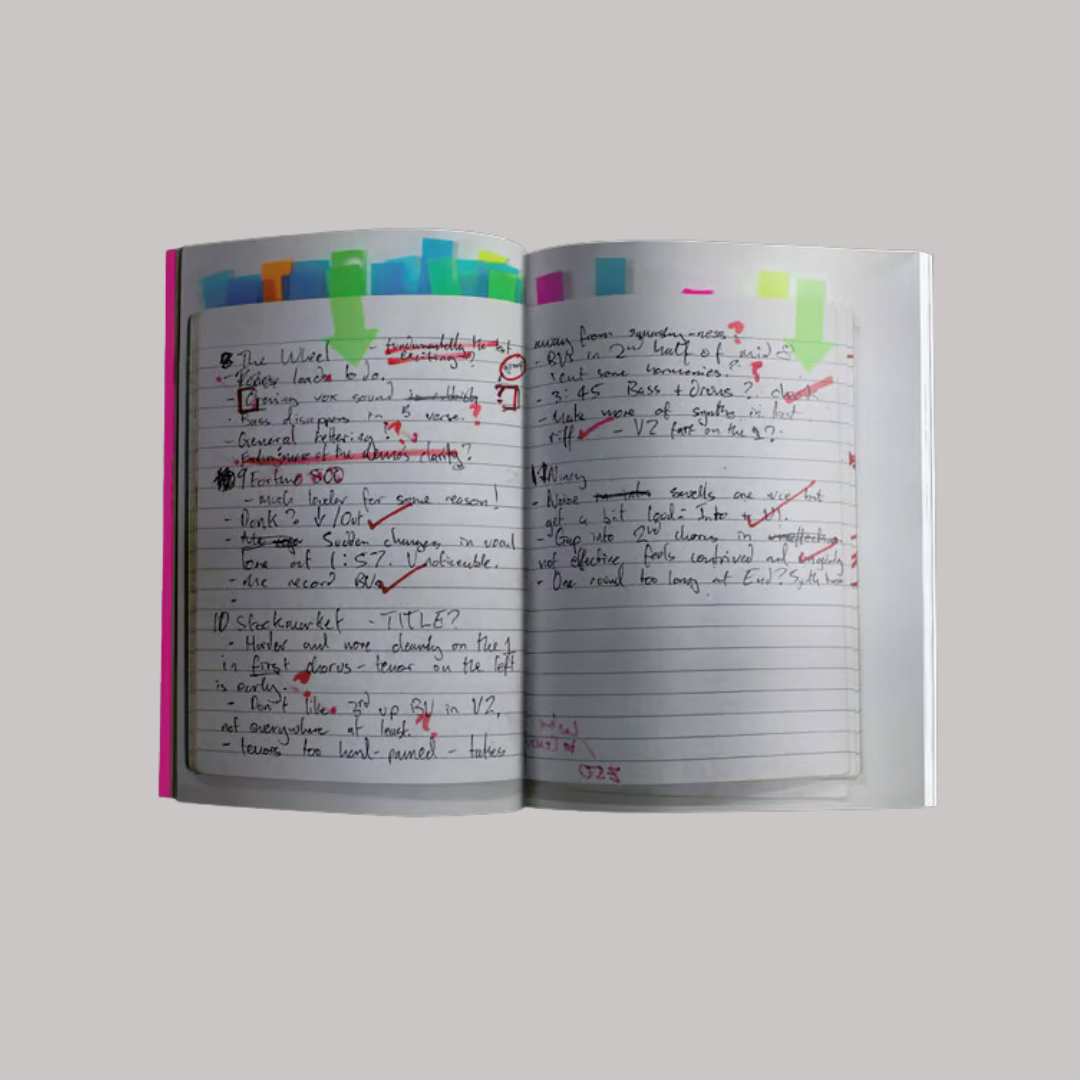 8 The Wheel - fundamentally the
exciting?
- loads to do.
- Opening vox sound
- Bass disappears in verse.
- General bettering!?
of the demos clarity?
9 Fortune 800
- Much louder for some reason!
- Donk? ↓/Out
- Sudden changes in vocal
tone at 1:57. V noticeable.
- the record BVs
-
10 Stockmarket - TITLE?
- Harder and more cleanly on the 1
in first chorus - tenor on the left
is early.
- Don't like 3rd up BV in V2,
not everywhere at least.
- tenors too hard-panned - takes
away from squashy-ness.
- BVs in 2nd half of mid 8
cut some harmonies.
- 3:45 Bass + Drums? check
- Make more of synths in last
riff - V2 fast on the 1?
11 Nancy
- Noise swells are nice but
get a bit loud - Into V1.
- Gap into 2nd chorus in
not effective, feels contrived and
- One round too long at End? Synth